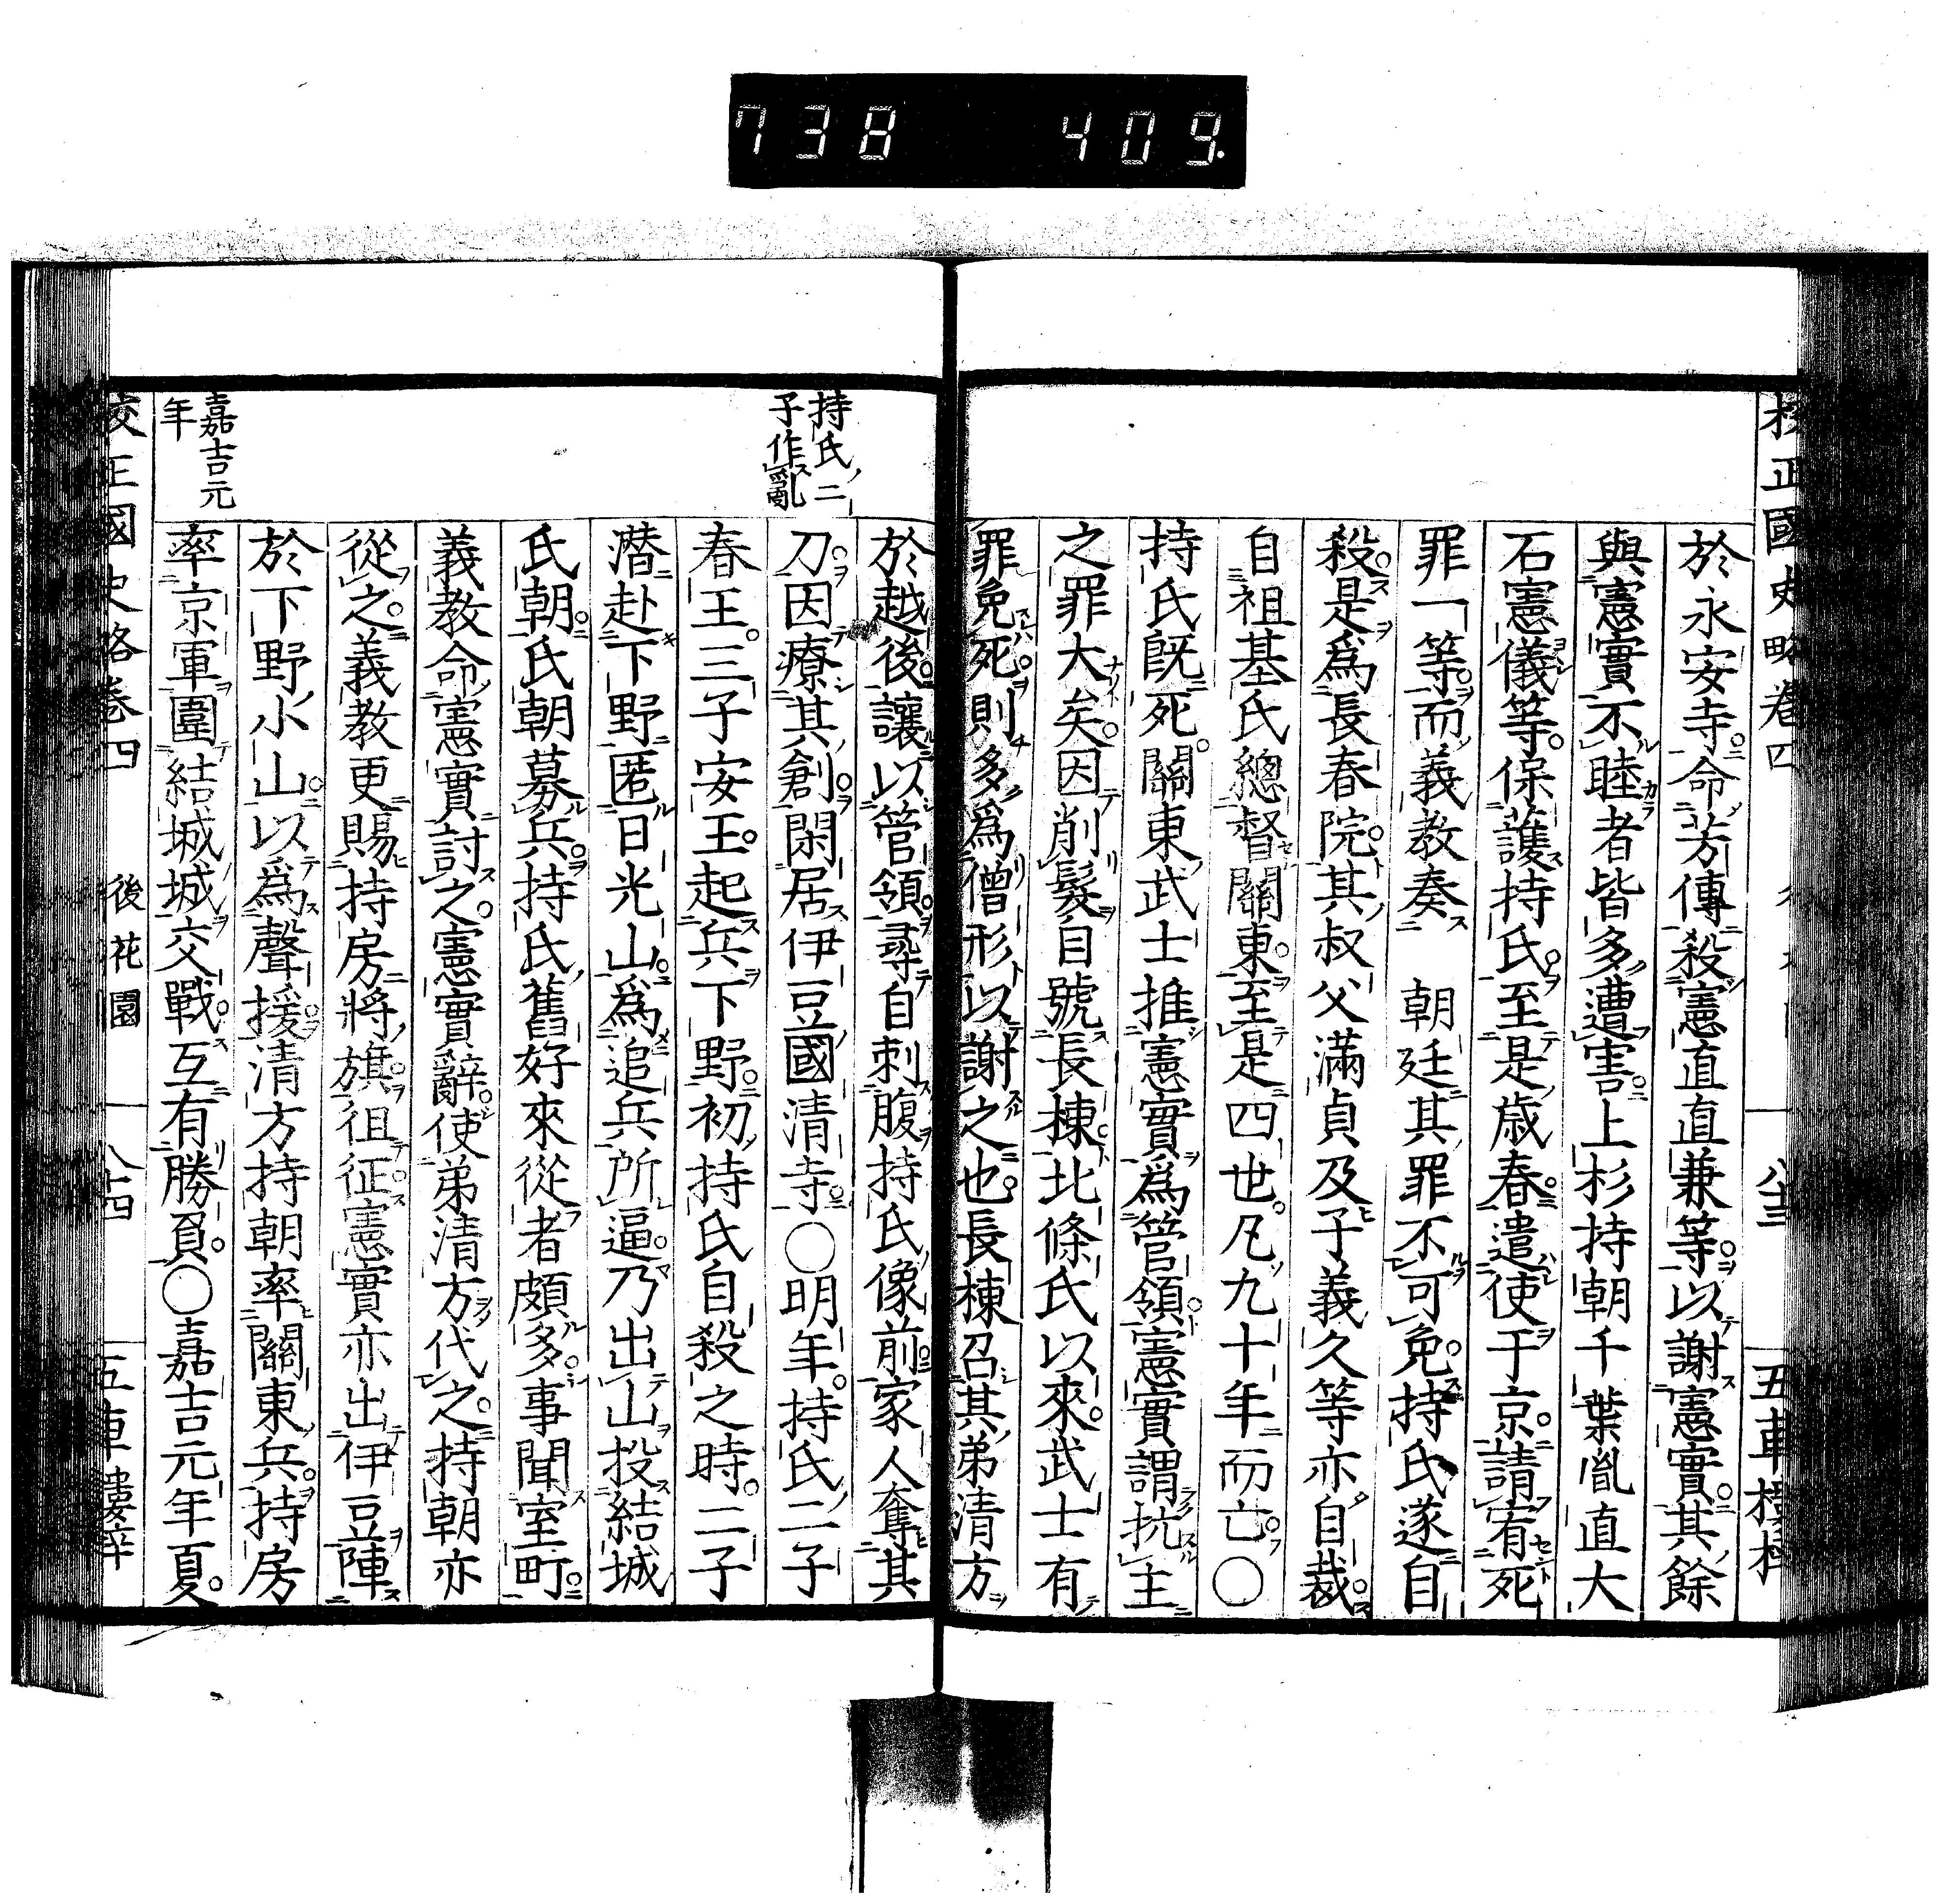 738 409.
校正國史略卷四
八十三
五車樓梓
於永安寺命芳傳殺憲直直兼等以謝憲實其餘
與憲實不睦者皆多遭害上杉持朝千葉胤直大
石憲儀等保護持氏至是歳春遣使于京請宥死
罪一等而義教奏　朝廷其罪不可免持氏遂自
殺是爲長春院其叔父滿貞及子義久等亦自裁
自祖基氏總督關東至是四世凡九十年而亡○
持氏既死關東武士推憲實爲管領憲實謂抗主
之罪大矣因削髮自號長棟北條氏以來武士有
罪免死則多爲僧形以謝之也長棟召其弟清方
於越後讓以管領尋自刺腹持氏像前家人奪其
刀因療其創閑居伊豆國清寺○明年持氏二子
春王三子安王起兵下野初持氏自殺之時二子
潜赴下野匿日光山爲追兵所逼乃出山投結城
氏朝氏朝募兵持氏舊好來從者頗多事聞室町
義教命憲實討之憲實辭使弟清方代之持朝亦
從之義教更賜持房將旗徂征憲實亦出伊豆陣
於下野小山以爲聲援清方持朝率關東兵持房
率京軍圍結城城交戰互有勝負○嘉吉元年夏
持氏二
子作亂
嘉吉元
年
校正國史略卷四
後花園
八十四
五車樓梓